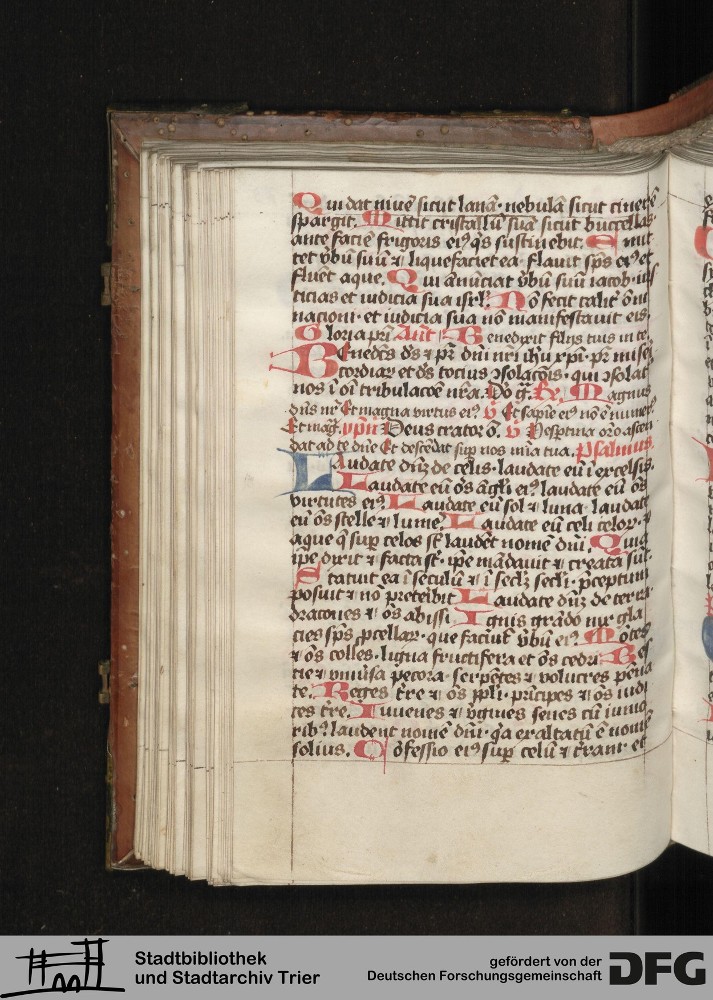 Qui dat nivē sicut lanā· nebulā sicut cinerē
spargit. Mittit cristallū suā sicut buccellas
ante faciē frigoris eiꝰ qͥs sustinebit. Emit
tet v̄bū suū ⁊ liquefaciet ea· flavit sp̄s eiꝰ et
fluēt aque. Qui anūciat v̄bū suū iacob· ius
ticias et iudicia sua isrl̄. Nō fecit talit̄ om̄i
nacioni· et iudicia sua nō manifestavit eis·
Gloria pr̄i Ant̄ Benedixit filijs tuis in te·
Benedc̄s ds̄ ⁊ pr̄ dn̄i nr̄i ih̄u xp̄i· pr̄ mise
ricordiaꝝ et ds̄ tocius ꝯsolacōis· qui ꝯsolat̄
nos ī oī tribulacōe nr̄a. Dō gr̄. R̄. Magnus
dn̄s nr̄ Et magna virtus eiꝰ v̄ Et sapīe eiꝰ nō ē numerꝰ
Et maḡ. ympꝰ Deus creator ō. v̄ Vesptina or̄o ascen
dat ad te dn̄e Et descēdat sup̄ nos mīa tua. Psalmus.
Laudate dn̄z de celis· laudate eū ī excelsis.
Laudate eū ōs āgl̄i eiꝰ· laudate eū ōs
virtutes eiꝰ. Laudate eū sol ⁊ luna· laudate
eū ōs stelle ⁊ lumē. Laudate eū celi celoꝝ· ⁊
aque q̄ sup̄ celos st̄ laudēt nomē dn̄i. Quia
ip̄e dixit ⁊ facta st̄· ip̄e mādavit ⁊ creata sūt.
Statuit ea ī seculū ⁊ ī secl̄z secl̄i· p̄ceptum
posuit ⁊ nō preteībit Laudate dn̄z de terra·
dracones ⁊ ōs abissi. Ignis grādo nix gla
cies sp̄s ꝓcellaꝝ· que faciūt v̄bū eiꝰ. Mōtes
⁊ ōs colles· ligna fructifera et ōs cedri. Bes
tie ⁊ vniv̄sa pecora· serpētes ⁊ volucres pēna
te. Reges t̄re ⁊ ōs ppl̄i· prīcipes ⁊ ōs iudi
ces t̄re. Iuvenes ⁊ v̄gines senes cū iunio
ribꝰ laudent nomē dn̄i· qͥa exaltatū ē nomē
solius. Cōfessio eiꝰ sup̄ celū ⁊ t̄ram· et
Stadtbibliothek
und Stadtarchiv Trier
gefördert von der
Deutschen Forschungsgemeinschaft DFG